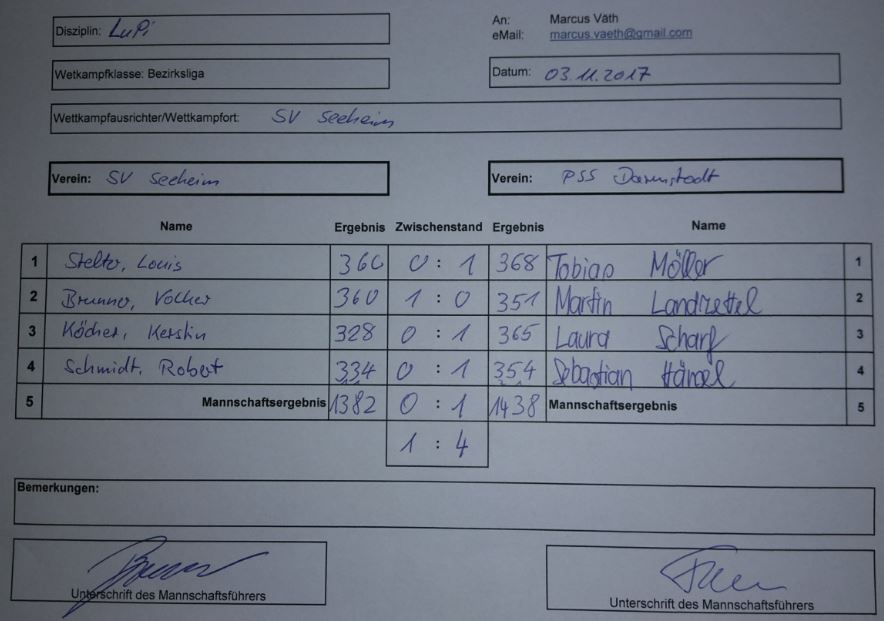 Disziplin: LuPi
An: Marcus Väth
eMail: marcus.vaeth@gmail.com
Wetkampfklasse: Bezirksliga
Datum: 03.11.2017
Wettkampfausrichter/Wettkampfort: SV Seeheim
Verein: SV Seeheim
Verein: PSS Darmstadt
Name Ergebnis Zwischenstand Ergebnis Name
1 Stelto, Louis 360 0 : 1 368 Tobias Möller 1
2 Brunner, Volker 360 1 : 0 351 Martin Landzettel 2
3 Köcher, Kerstin 328 0 : 1 365 Laura Scharf 3
4 Schmidt, Robert 334 0 : 1 354 Sebastian Hänsel 4
5 Mannschaftsergebnis 1382 0 : 1 1438 Mannschaftsergebnis 5
1 : 4
Bemerkungen:
Unterschrift des Mannschaftsführers
Unterschrift des Mannschaftsführers